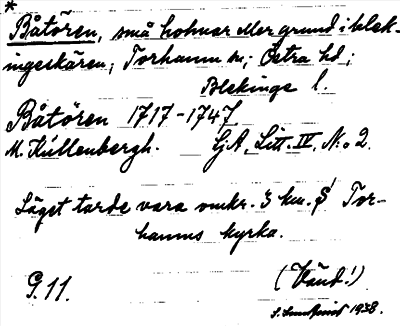 *
Båtören, små holmar eller grund i blek-
ingeskären; Torhamn sn; Östra hd;
Blekinge l.
Båtören 1717-1747
M. Küllenbergh. GA, Litt. IV, No 2.
Läget torde vara omkr. 3 km. S Tor-
hamns kyrka.
G. 11. (Vänd!)
S. 1938.